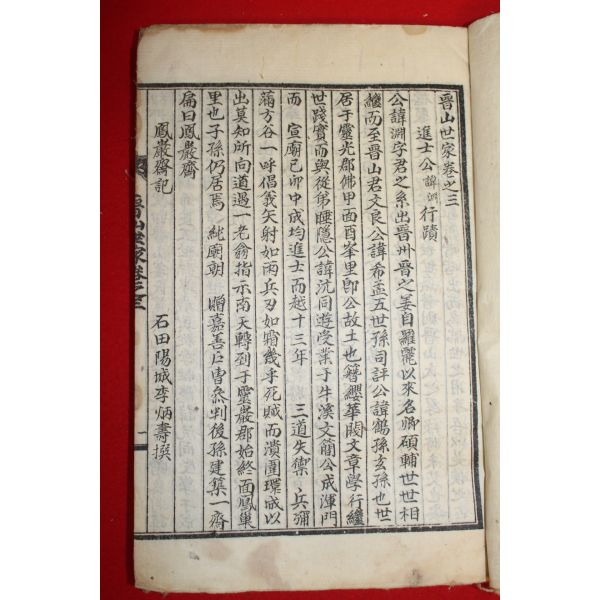 晋山世家卷之三
進士公諱淵行蹟
公諱淵字君之系出晋州晋之姜自羅麗以來名卿碩輔世世相
繼而至晋山君文良公諱希孟五世孫司評公諱鶴孫玄孫也世
居于靈光郡佛甲面酉峯里卽公故土也簪纓華閥文章學行繼
世踐實而與從弟睡隱公諱沆同遊受業于牛溪文簡公成渾門
而 宣廟己卯中成均進士而越十三年 三道失禦 兵彌
滿方谷一呼倡義矢射如雨兵刃如霜幾乎死賊而潰圍環或以
出莫知所向道遇一老翁指示南天轉到于靈巖郡始終面鳳巢
里也子孫仍居焉 純廟朝 贈嘉善戶曹叅判後孫建築一齋
扁曰鳳巖齋
石田陽城李炳壽撰
鳳巖齋記
晋山世家卷之三
一